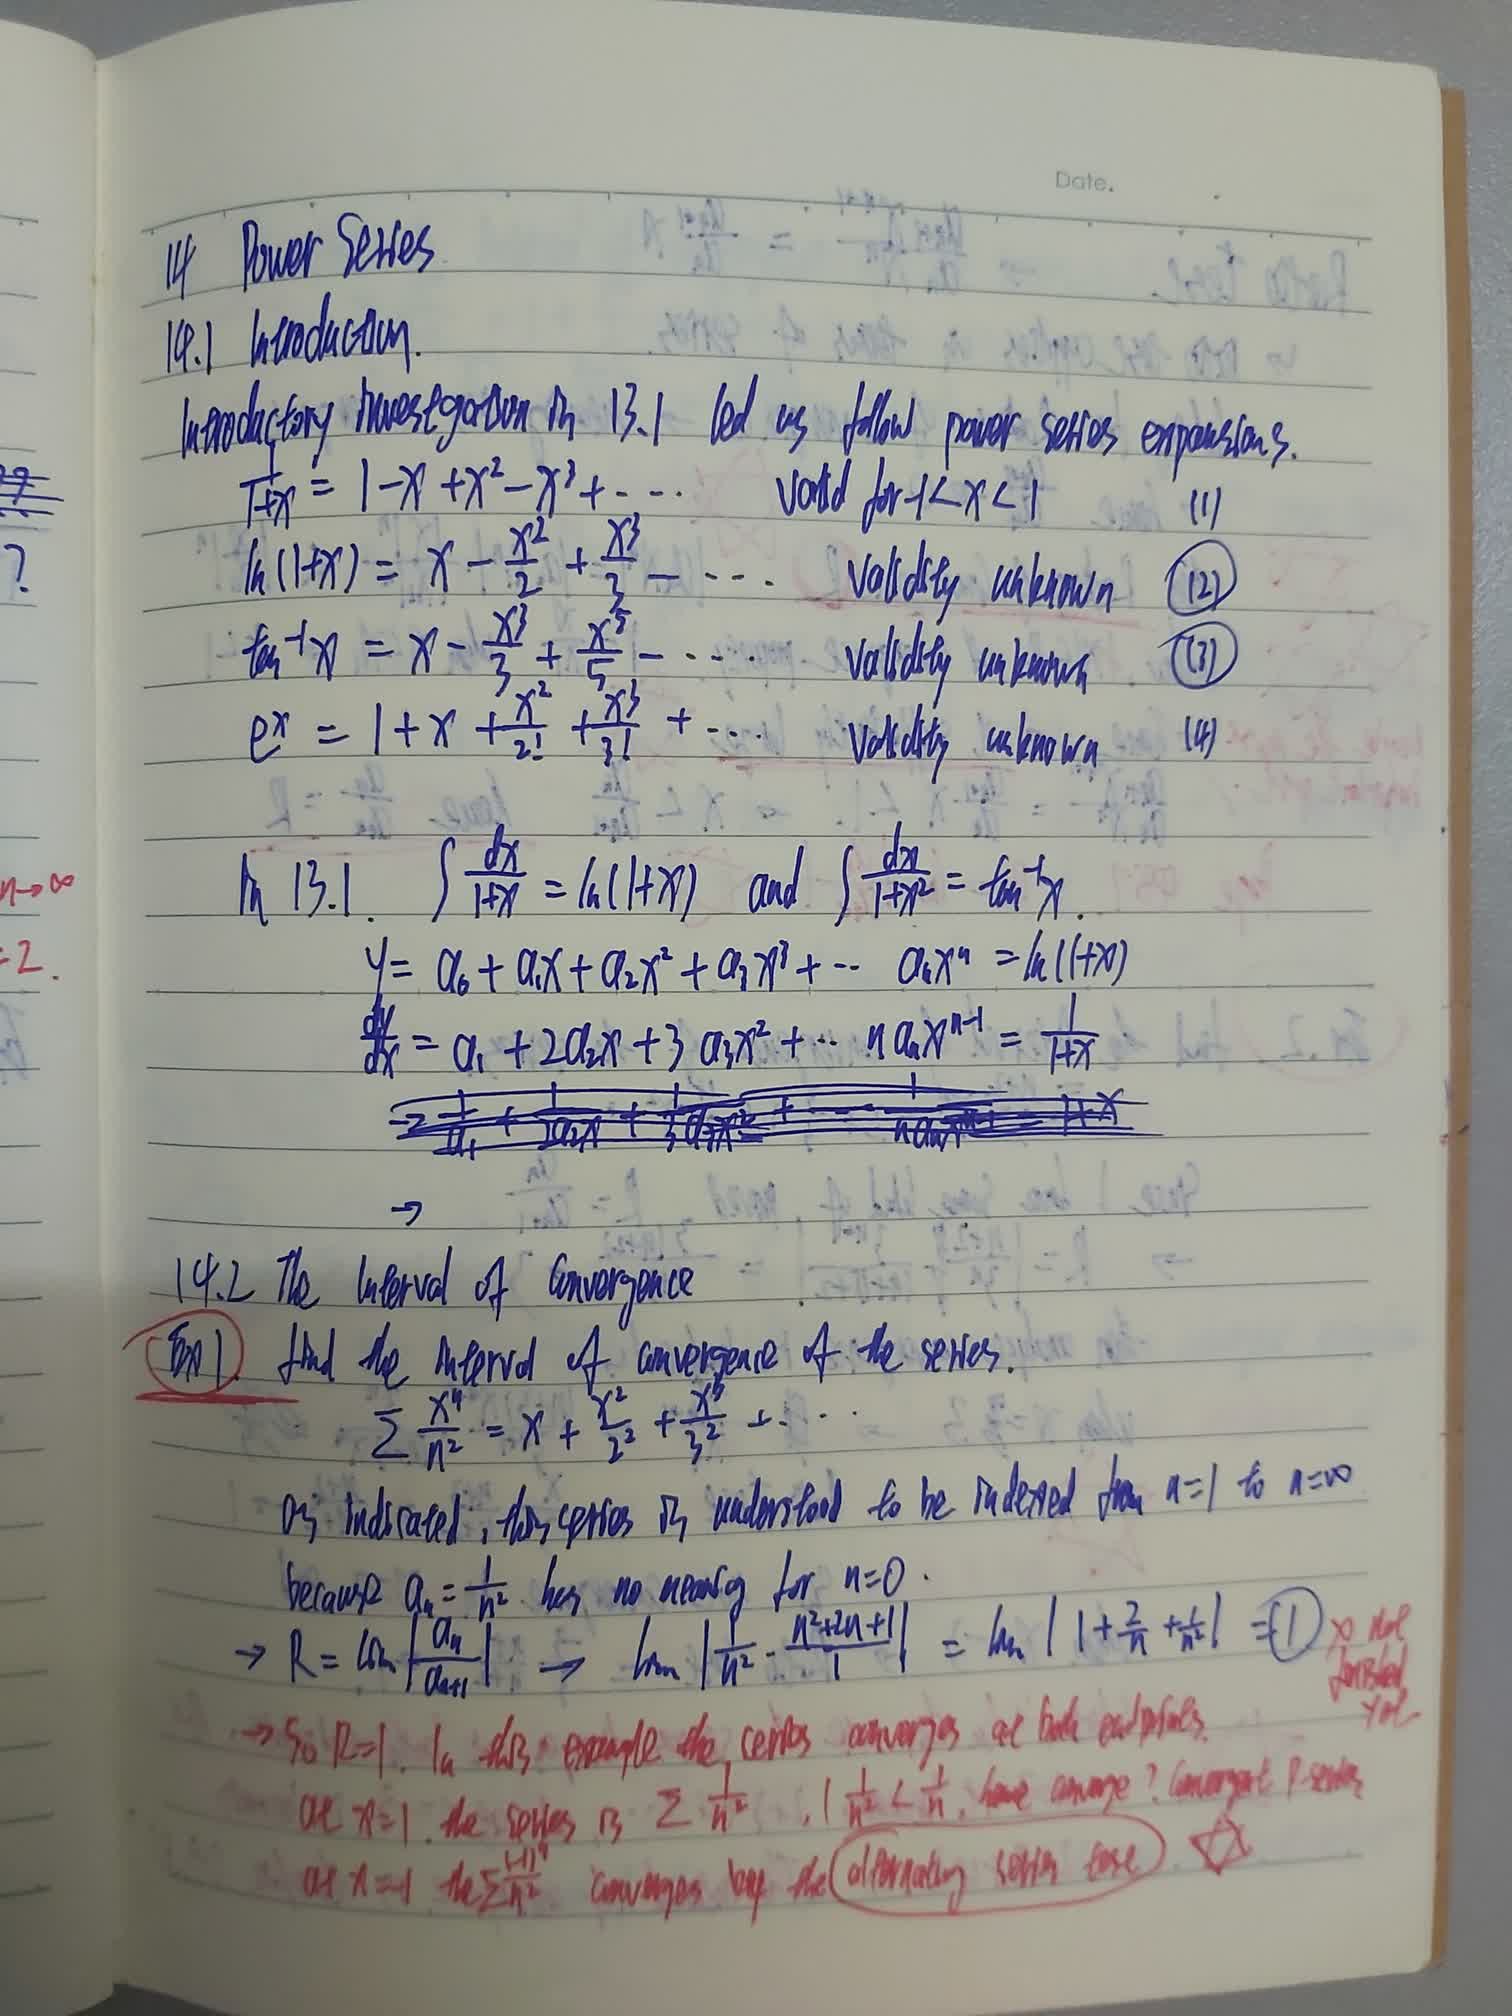 Date.
14 Power Series
14.1 Introduction.
Introductory investigation in 13.1 led us follow power series expansions.
1/(1+x) = 1-x+x²-x³+.... valid for -1<x<1 (1)
ln(1+x) = x - x²/2 + x³/3 - .... validity unknown (2)
tan⁻¹x = x - x³/3 + x⁵/5 - .... validity unknown (3)
eˣ = 1+x+x²/2!+x³/3! + ... validity unknown (4)
In 13.1. ∫dx/(1+x) = ln(1+x) and ∫dx/(1+x²) = tan⁻¹x.
y = a₀+a₁x+a₂x²+a₃x³+... aₙxⁿ = ln(1+x)
dy/dx = a₁+2a₂x+3a₃x²+... naₙxⁿ⁻¹ = 1/(1+x)
→
14.2 The Interval of Convergence
Ex 1. find the interval of convergence of the series.
∑ xⁿ/n² = x + x²/2² + x³/3² + ...
as indicated, this series is understood to be indexed from n=1 to n=∞
because aₙ = 1/n² has no meaning for n=0.
→ R = lim|aₙ/aₙ₊₁| → lim |1/n² · (n²+2n+1)/1| = lim |1+2/n+1/n²| = 1
→ not
finished
yet
→ So R=1. In this example the series converges at both endpoints.
at x=1. the series is ∑ 1/n², 1/n² < 1/n, have converge? convergent P-series
at x=-1 the ∑(-1)ⁿ/n² converges by the alternating series test ☆
? 
n→∞
=2.